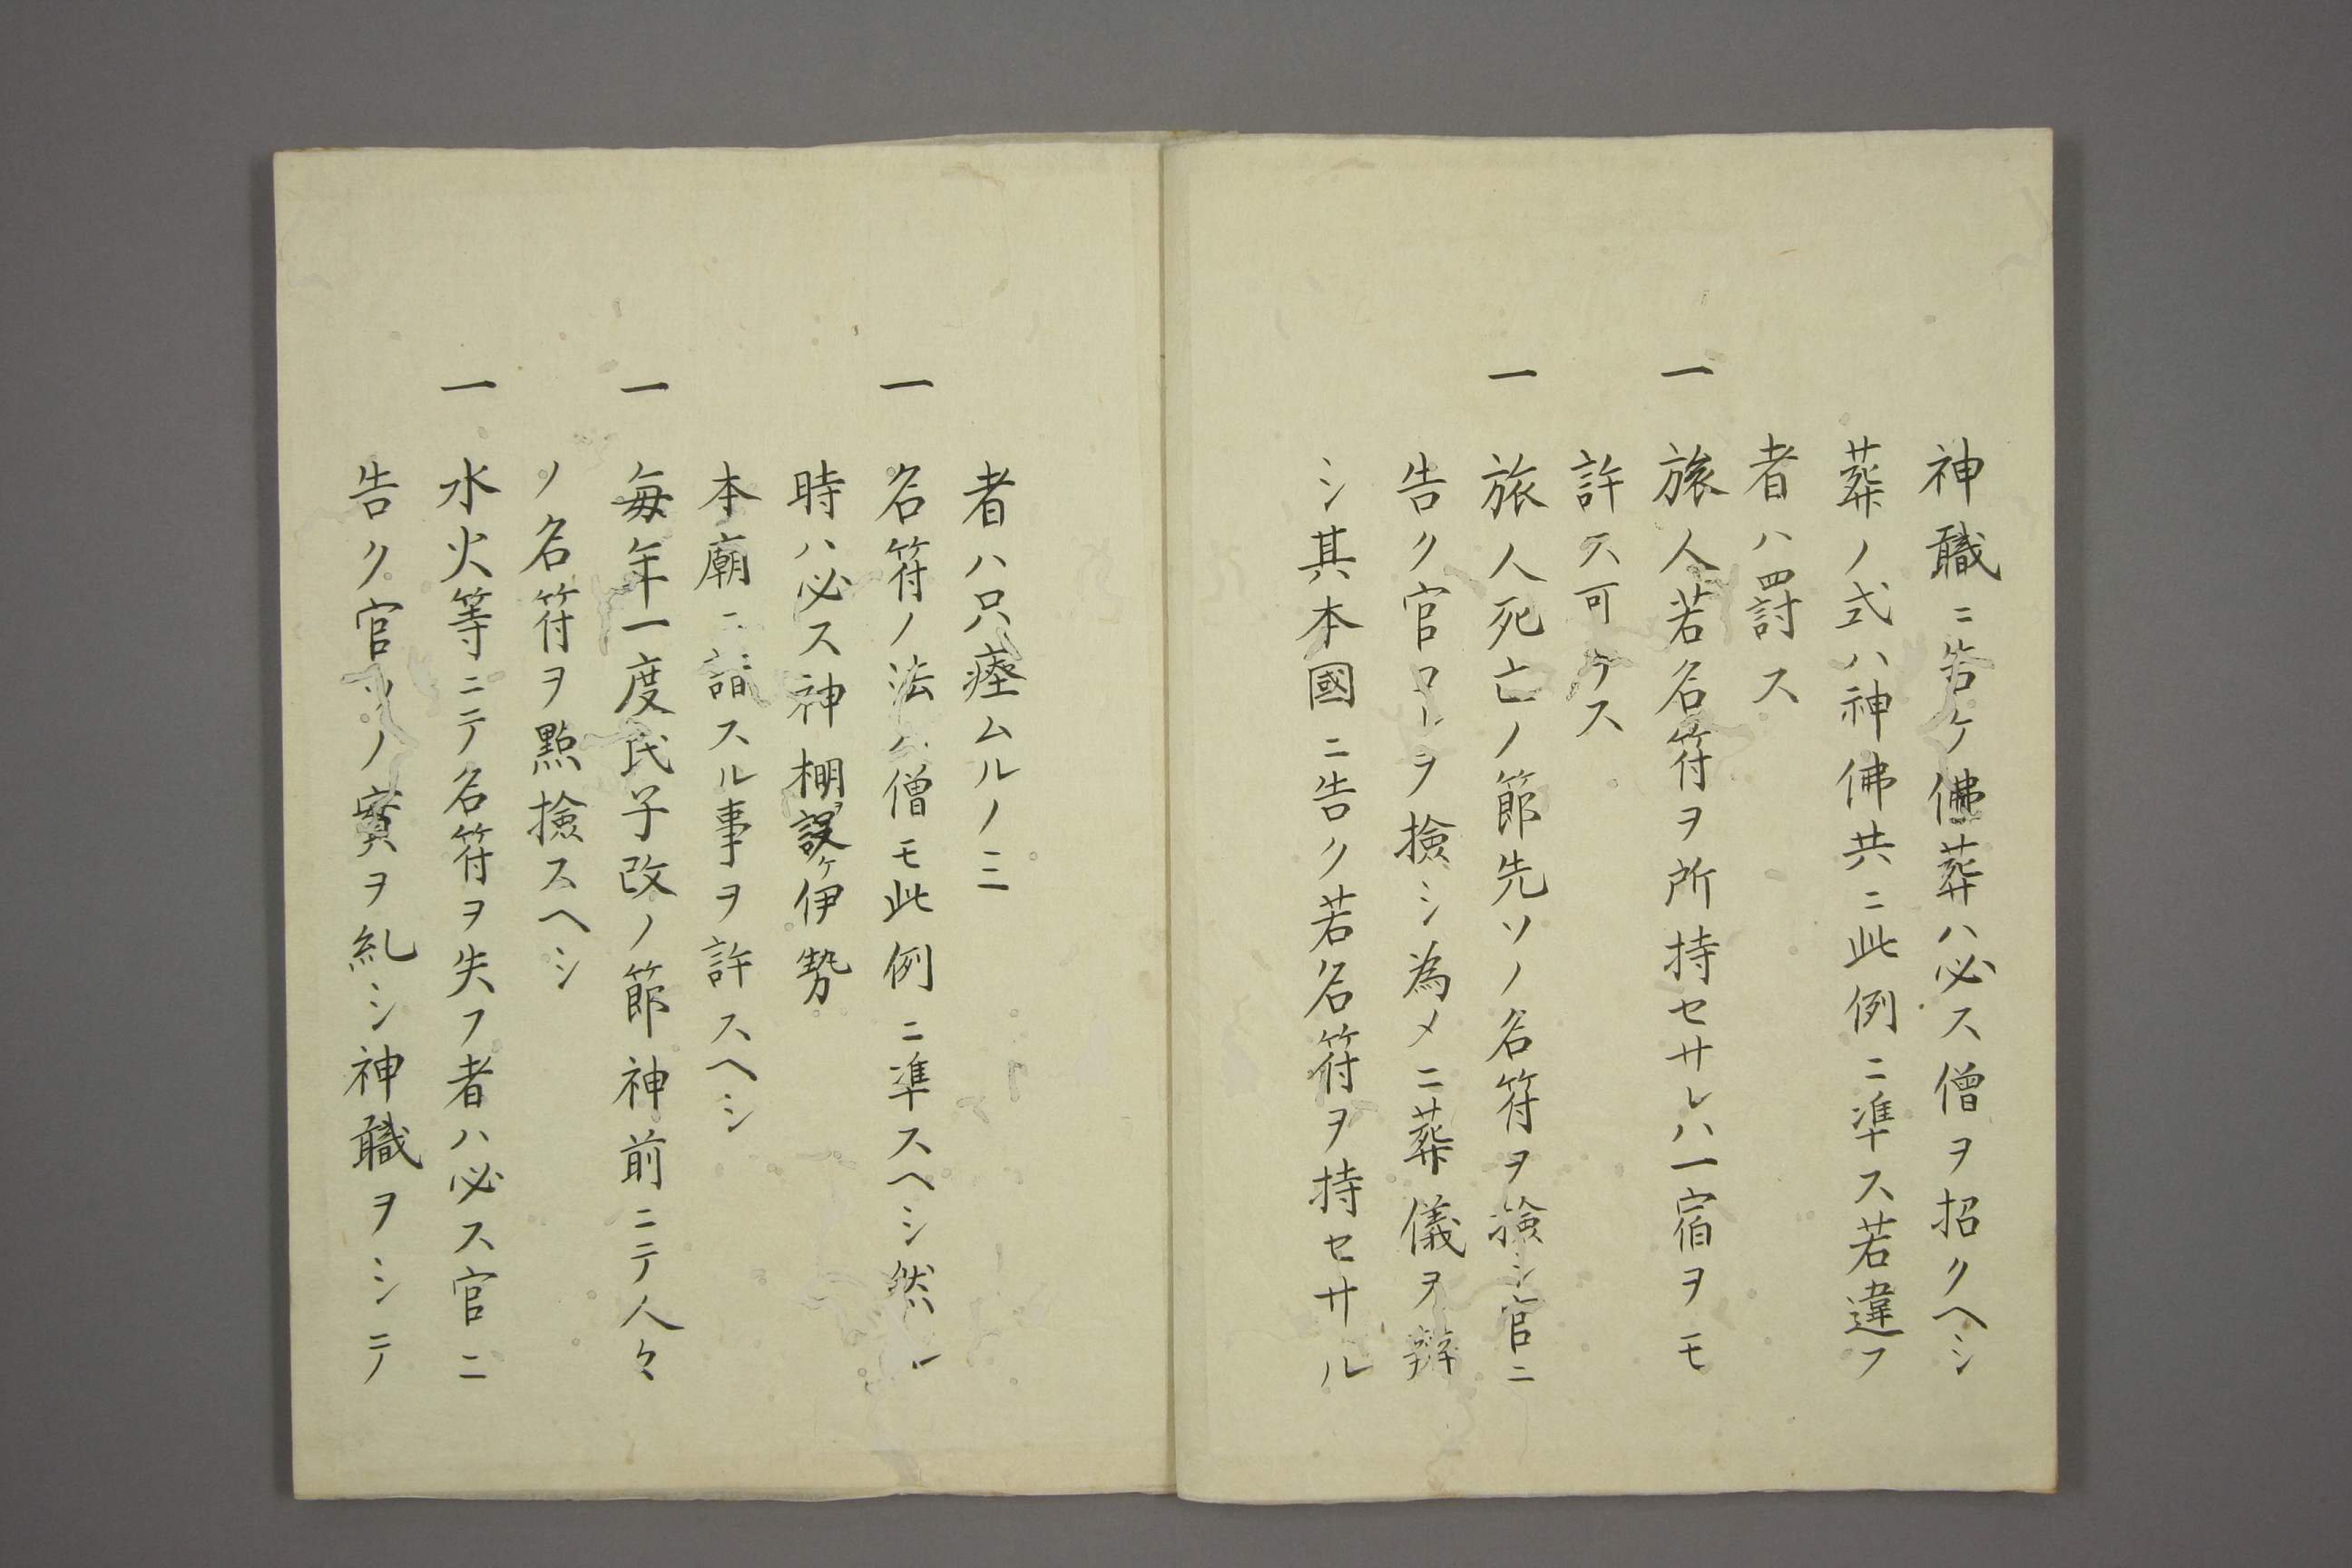 神職ニ告ケ佛葬ハ必ス僧ヲ招クヘシ
葬ノ式ハ神佛共ニ此例ニ準ス若違フ
者ハ罰ス
一 旅人若名符ヲ所持セサレハ一宿ヲモ
許ス可ケス
一 旅人死亡ノ節先ソノ名符ヲ撿シ官ニ
告ク官コレヲ撿シ為メニ葬儀ヲ辨
シ其本國ニ告ク若名符ヲ持セサル
者ハ只瘞ムルノミ
一 名符ノ法ハ僧モ此例ニ準スヘシ然レ
時ハ必ス神棚ヲ設ケ伊勢
本廟ニ詣スル事ヲ許スヘシ
一 毎年一度氏子改ノ節神前ニテ人々
ノ名符ヲ點撿スヘシ
一 水火等ニテ名符ヲ失フ者ハ必ス官ニ
告ク官ソノ實ヲ糺シ神職ヲシテ